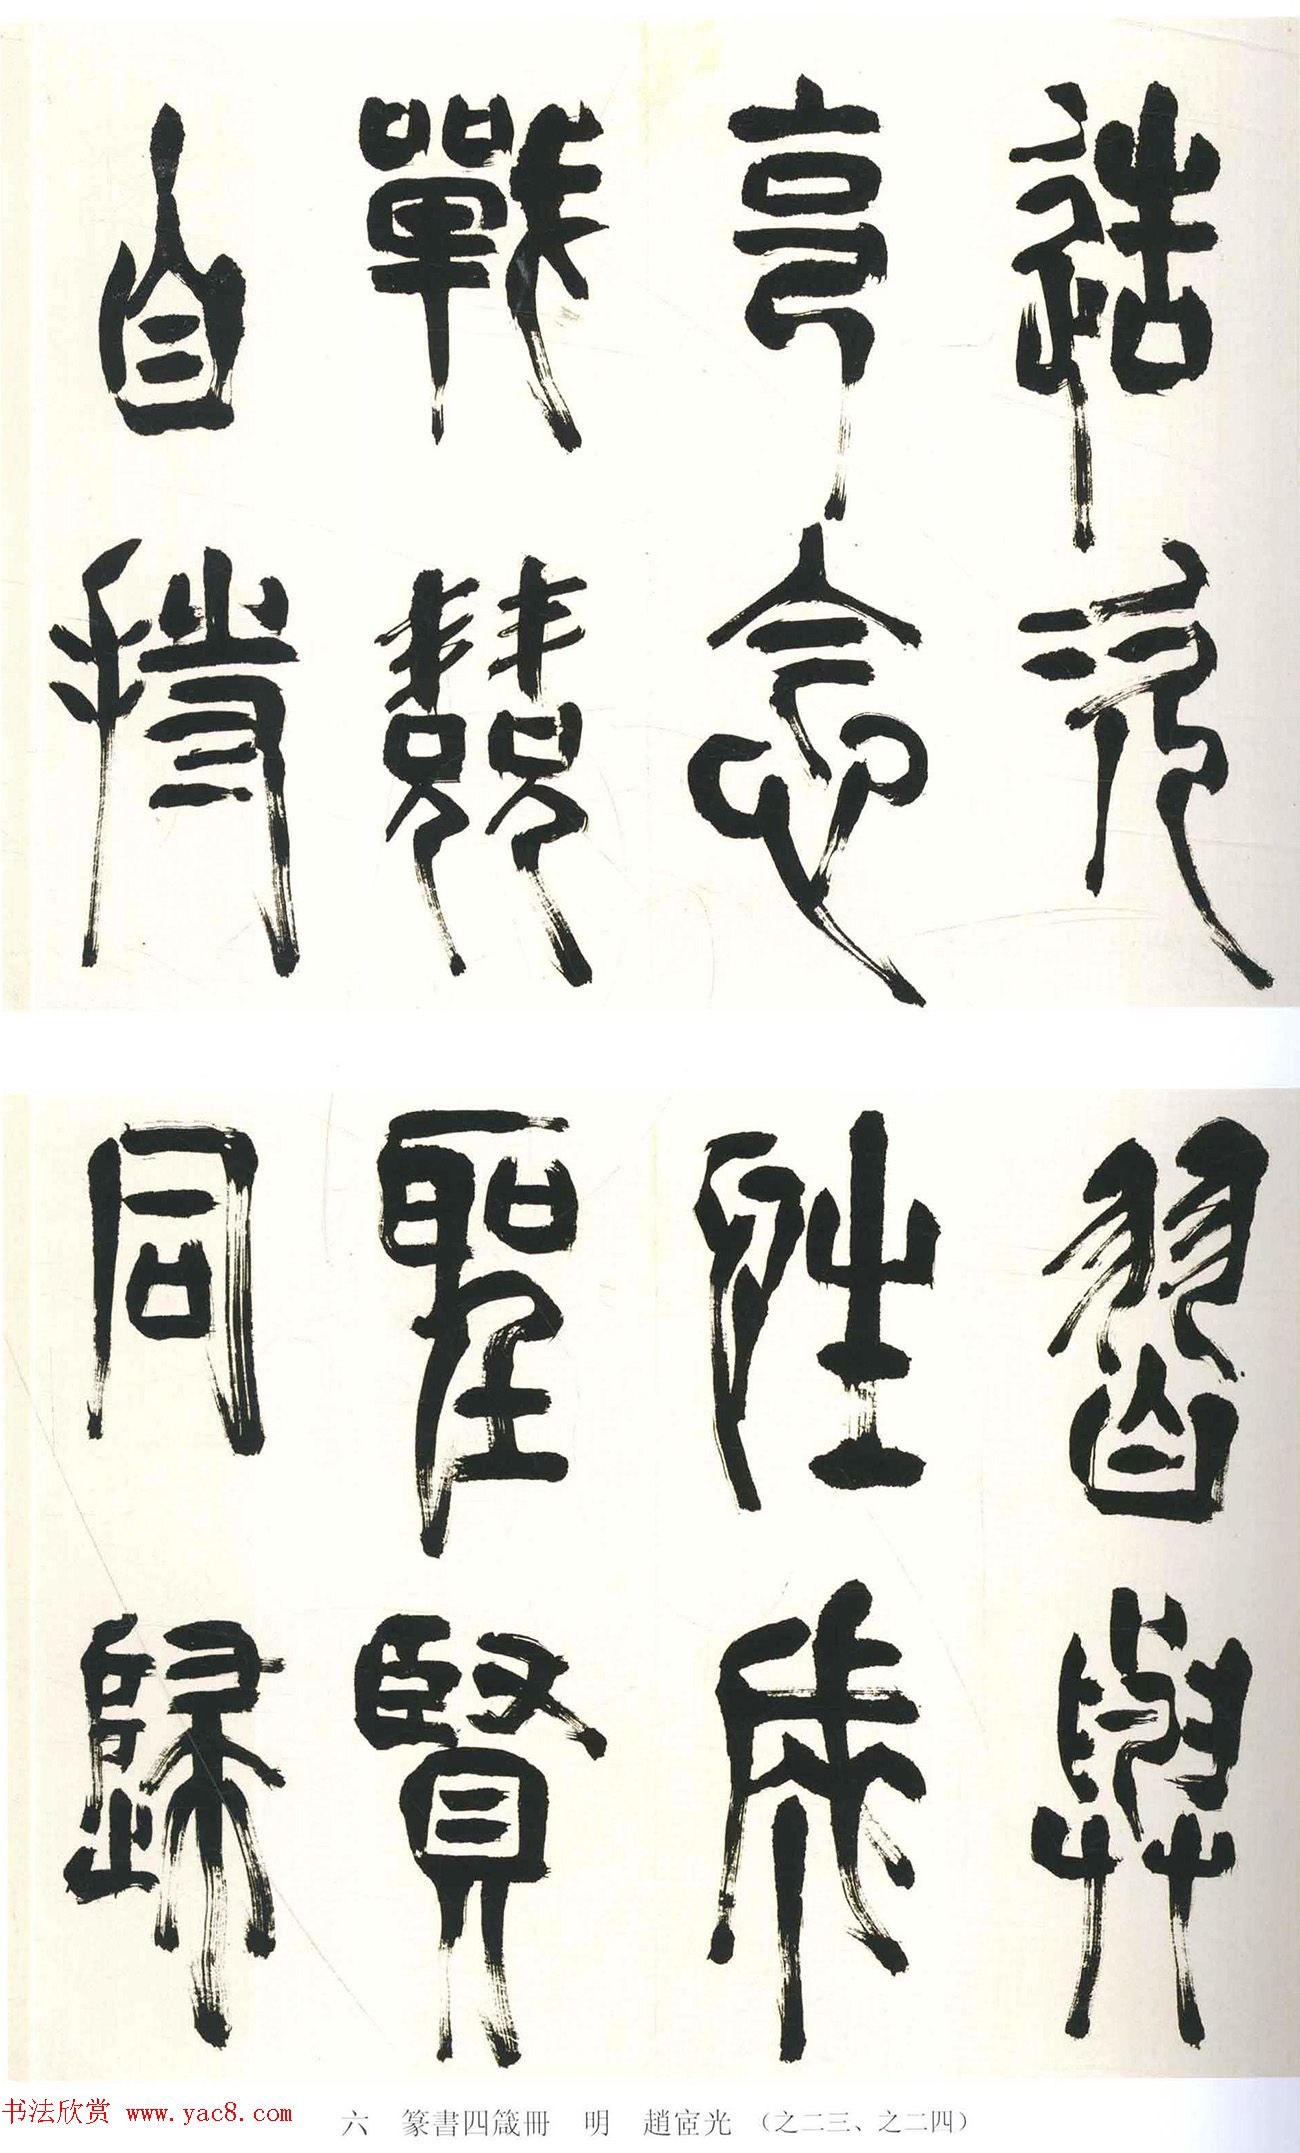 造次
克念
戰兢
自持
習與
性成
聖賢
同歸
书法欣赏 www.yac8.com
六 篆書四箴冊 明 趙宧光 (之二三、之二四)